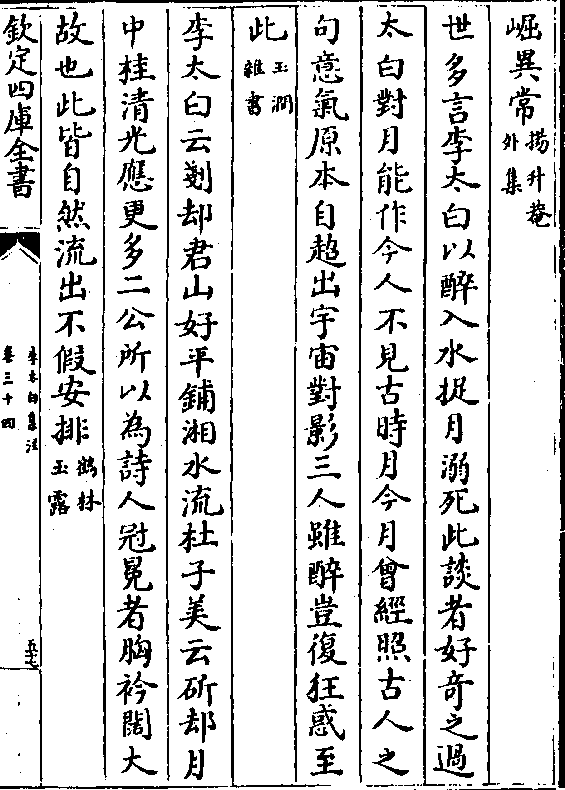 崛異常楊升菴外集
世多言李太白以醉入水捉月溺死此談者好奇之過
太白對月能作今人不見古時月今月曾經照古人之
句意氣原本自超出宇宙對影三人雖醉豈復狂惑至
此玉澗雜書
李太白云剗却君山好平鋪湘水流杜子美云斫却月
中桂清光應更多二公所以為詩人冠冕者胸衿闊大
故也此皆自然流出不假安排鶴林玉露
欽定四庫全書
李太白集注
卷三十四
五十七